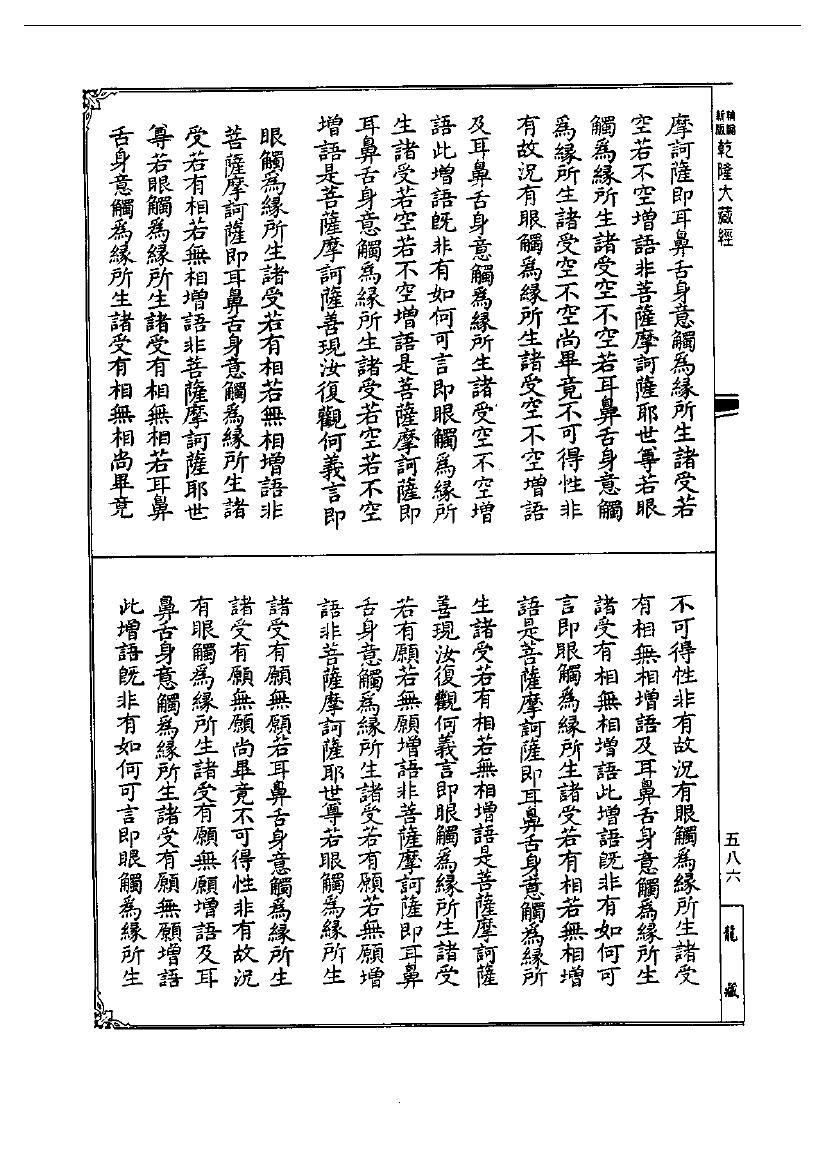 新編
新版
乾隆大藏經
摩訶薩即耳鼻舌身意觸爲緣所生諸受若
空若不空增語非菩薩摩訶薩耶世尊若眼
觸爲緣所生諸受空不空若耳鼻舌身意觸
爲緣所生諸受空不空尚畢竟不可得性非
有故況有眼觸爲緣所生諸受空不空增語
及耳鼻舌身意觸爲緣所生諸受空不空增
語此增語旣非有如何可言即眼觸爲緣所
生諸受若空若不空增語是菩薩摩訶薩即
耳鼻舌身意觸爲緣所生諸受若空若不空
增語是菩薩摩訶薩善現汝復觀何義言即
眼觸爲緣所生諸受若有相若無相增語非
菩薩摩訶薩即耳鼻舌身意觸爲緣所生諸
受若有相若無相增語非菩薩摩訶薩耶世
尊若眼觸爲緣所生諸受有相無相若耳鼻
舌身意觸爲緣所生諸受有相無相尚畢竟
不可得性非有故況有眼觸爲緣所生諸受
有相無相增語及耳鼻舌身意觸爲緣所生
諸受有相無相增語此增語旣非有如何可
言即眼觸爲緣所生諸受若有相若無相增
語是菩薩摩訶薩即耳鼻舌身意觸爲緣所
生諸受若有相若無相增語是菩薩摩訶薩
善現汝復觀何義言即眼觸爲緣所生諸受
若有願若無願增語非菩薩摩訶薩即耳鼻
舌身意觸爲緣所生諸受若有願若無願增
語非菩薩摩訶薩耶世尊若眼觸爲緣所生
諸受有願無願若耳鼻舌身意觸爲緣所生
諸受有願無願尚畢竟不可得性非有故況
有眼觸爲緣所生諸受有願無願增語及耳
鼻舌身意觸爲緣所生諸受有願無願增語
此增語旣非有如何可言即眼觸爲緣所生
五八六
龍藏